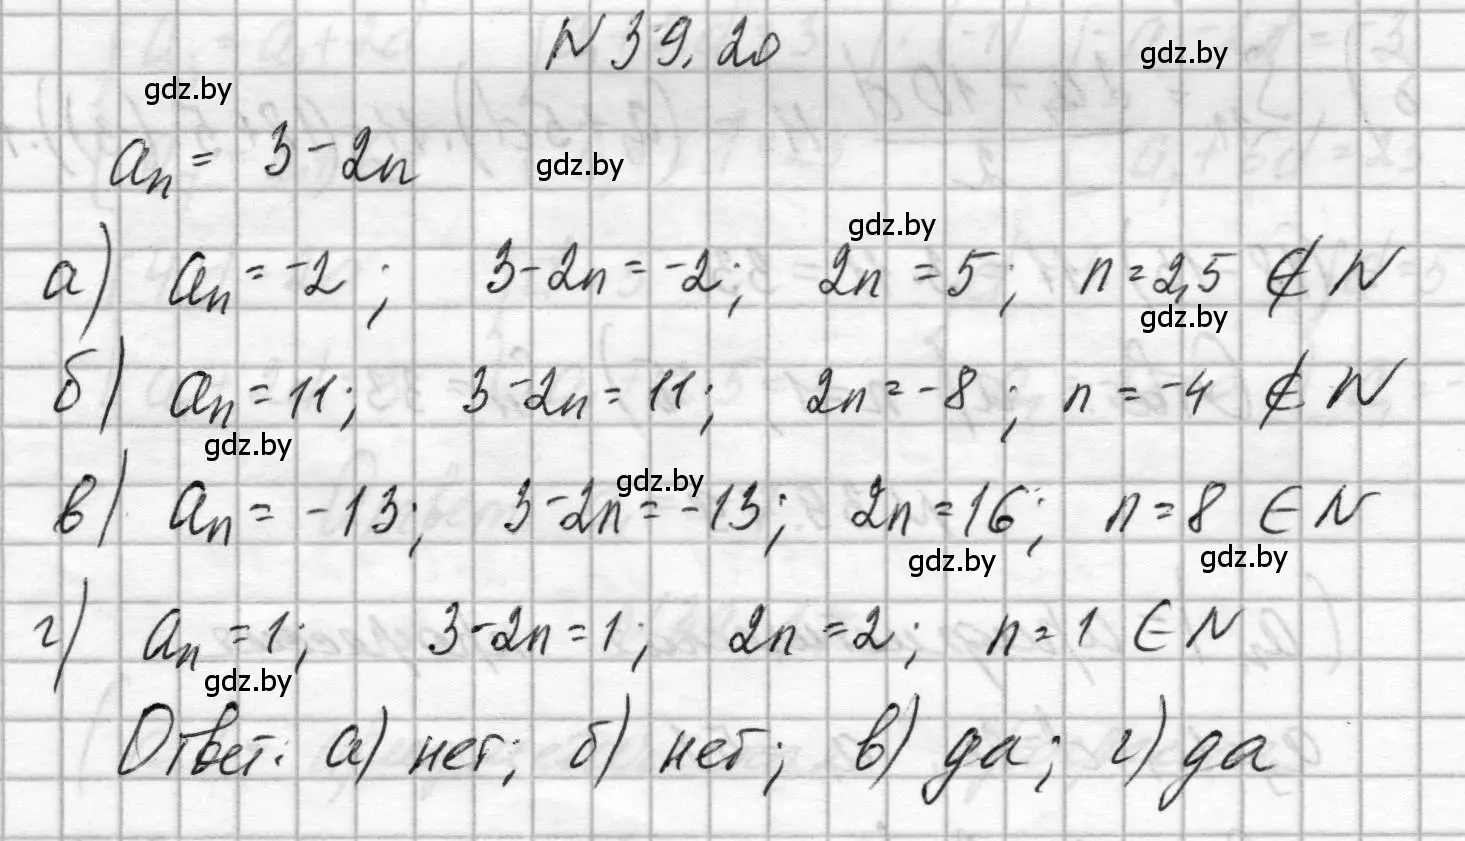 N 39.20
gdz.by
gdz.by
aₙ = 3 - 2n
gdz.by
gdz.by
а) aₙ = -2; 3 - 2n = -2; 2n = 5; n = 2,5 ∉ N
gdz.by
б) aₙ = 11; 3 - 2n = 11; 2n = -8; n = -4 ∉ N
gdz.by
gdz.by
в) aₙ = -13; 3 - 2n = -13; 2n = 16; n = 8 ∈ N
gdz.by
gdz.by
г) aₙ = 1; 3 - 2n = 1; 2n = 2; n = 1 ∈ N
gdz.by
Ответ: а) нет; б) нет; в) да; г) да